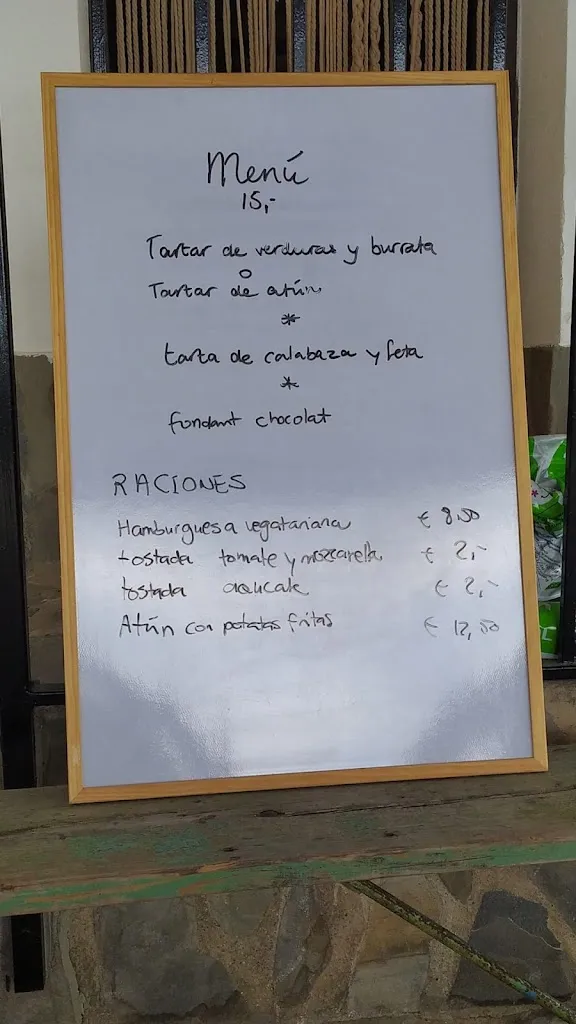 Menú
15,-
Tartar de verduras y burrata
o
Tartar de atún
*
tarta de calabaza y feta
*
fondant chocolat
RACIONES
Hamburguesa vegatariana € 8,50
tostada tomate y mozcarella € 2,-
tostada € 2,-
Atún con patatas fritas € 12,50